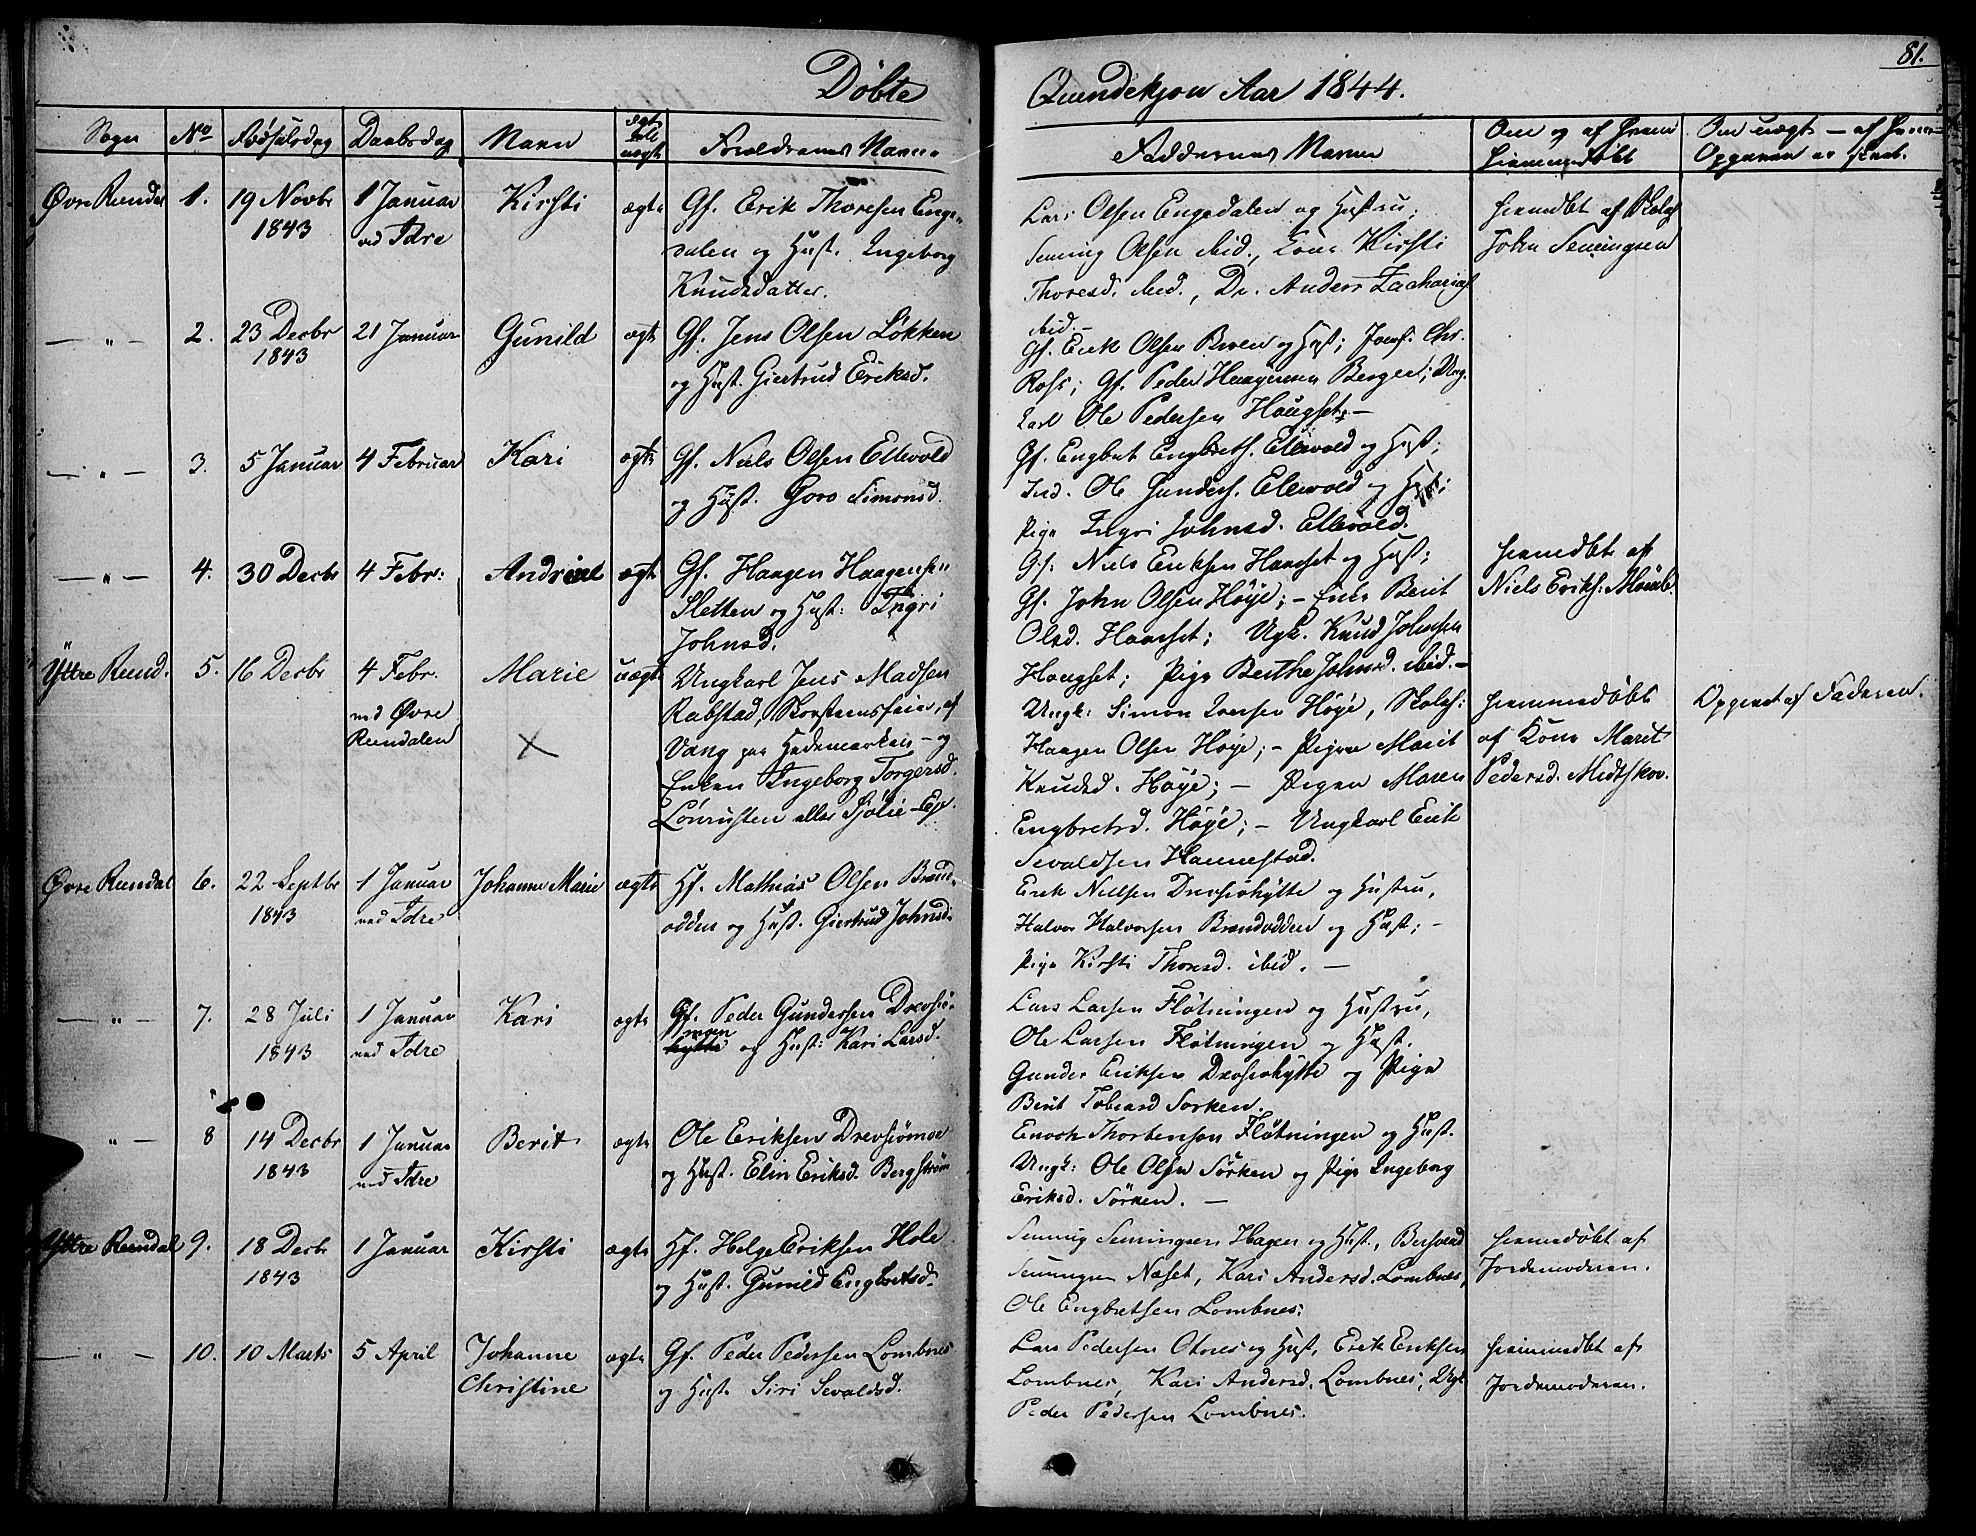 81.
Döbte Quindekjøn Aar 1844.
Sogn No Fødselsdag Daabsdag Navn ægte eller uægte Forældrenes Navne
Faddernes Navne Om og af hvem hjemmedøbt Om uægte — af hvem Opgaven er skeet.
Øvre Rendal 1. 19 Novbr 1843 1 Januar ved Idre Kirsti ægte
Gf. Erik Thoresen Enge-
dalen og Hust. Ingeborg
Knudsdatter.
Lars Olsen Engedalen og Hustru,
Seming Olsen ibid., Kone Kirsti
Thoresd. ibid., Dr. Anders Zacharias
ibid.—
hjemdøbt af Skolef.
John Semingsen
— „ — 2. 23 Decbr 1843 21 Januar Gunild ægte
Gf. Jens Olsen Løkken
og Hust. Giertrud Eriksd.
Gf. Erik Olsen Breen og Hust; Chr.
Ross; Gf. Peder Haagensen Berger; Ung-
karl Ole Pedersen Haugset.—
— „ — 3. 5 Januar 4 Februar Kari ægte
Gf. Niels Olsen Ellevold
og Hust. Goro Simonsd.
Gf. Engbret Engbreths. Ellevold og Hust;
Ind. Ole Gunders. Ellevold og Hust;
Pige Ingri Johnsd. Ellevold.
— „ — 4. 30 Decbr 4 Febr: Andrine ægte
Gf. Haagen Haagens.
Sletten og Hust: Ingri
Johnsd.
Gf. Niels Eriksen Haarset og Hust;
Gf. John Olsen Høye; — Enke Berit
Olsd. Haarset; Ugk. Knud Johnsen
Haugset; Pige Berthe Johnsd. ibid.—
hjemdøbt af
Niels Eriks:
Yttre Rend. 5. 16 Decbr 4 Febr. ved Øvre Rendalen Marie uægte
X
Ungkarl Jens Madsen
Rabstad, Skorstensfeier, af
Vang paa Hedemarken — og
Enken Ingeborg Torgersd.
Lønrusten eller Sjølie-Eje.
Ungk: Simon Iversen Høye, Skolef:
Haagen Olsen Høye; — Pigen Marit
Knudsd. Høye; — Pigen Maren
Engbretsd. Høye; — Ungkarl Erik
Sevaldsen Hannestad.
hjemmedøbt
af Kone Marit
Pedersd. Midtskov.
Opgivet af Faderen.
Øvre Rendal 6. 22 Septbr 1843 1 Januar ved Idre Johanne Marie ægte
Hf. Mathias Olsen Brænd-
odden og Hust. Giertrud Johnsd:
Erik Nielsen Drevsiøhytte og Hustru,
Halvor Halvorsen Brændodden og Hust; —
Pige Kirsti Thoresd. ibid. —
— „ — 7. 28 Juli 1843 1 Januar ved Idre Kari ægte
Gf. Peder Gundersen Drevsiø-
moen
hytte og Hust: Kari Larsd.
Lars Larsen Fløtningen og Hustru,
Ole Larsen Fløtningen og Hust.
Gunder Eriksen Drevsiøhytte og Pige
Berit Tobiasd Sorken.
„ — 8 14 Decbr 1843 1 Januar ved Idre Berit ægte
Ole Eriksen Drevsiømoe
og Hust. Elin Eriksd. Bergstrøm
Enoch Thorstenson Fløtningen og Hust.
Ungk: Ole Olsen Sørken og Pige Ingeborg
Eriksd. Sørken. —
Yttre Rendal 9. 18 Decbr 1843 1 Januar Kirsti ægte
Hf. Helge Eriksen Hole
og Hust. Gunild Engbretsd.
Seming Semingsen Hagen og Hust., Bersvend
Semingsen Næset, Kari Andersd. Lombnes,
Ole Engbretsen Lombnes.
hjemmedøbt af
Jordemoderen.
— „ — 10. 10 Marts 5 April Johanne Christine ægte
Gf. Peder Pedersen Lombnes
og Hust. Siri Sevaldsd.
Lars Pedersen Otnes og Hust, Erik Eriksen
Lombnes, Kari Andersd. Lombnes, Ungk
Peder Pedersen Lombnes.
hjemmedøbt af
Jordemoderen.